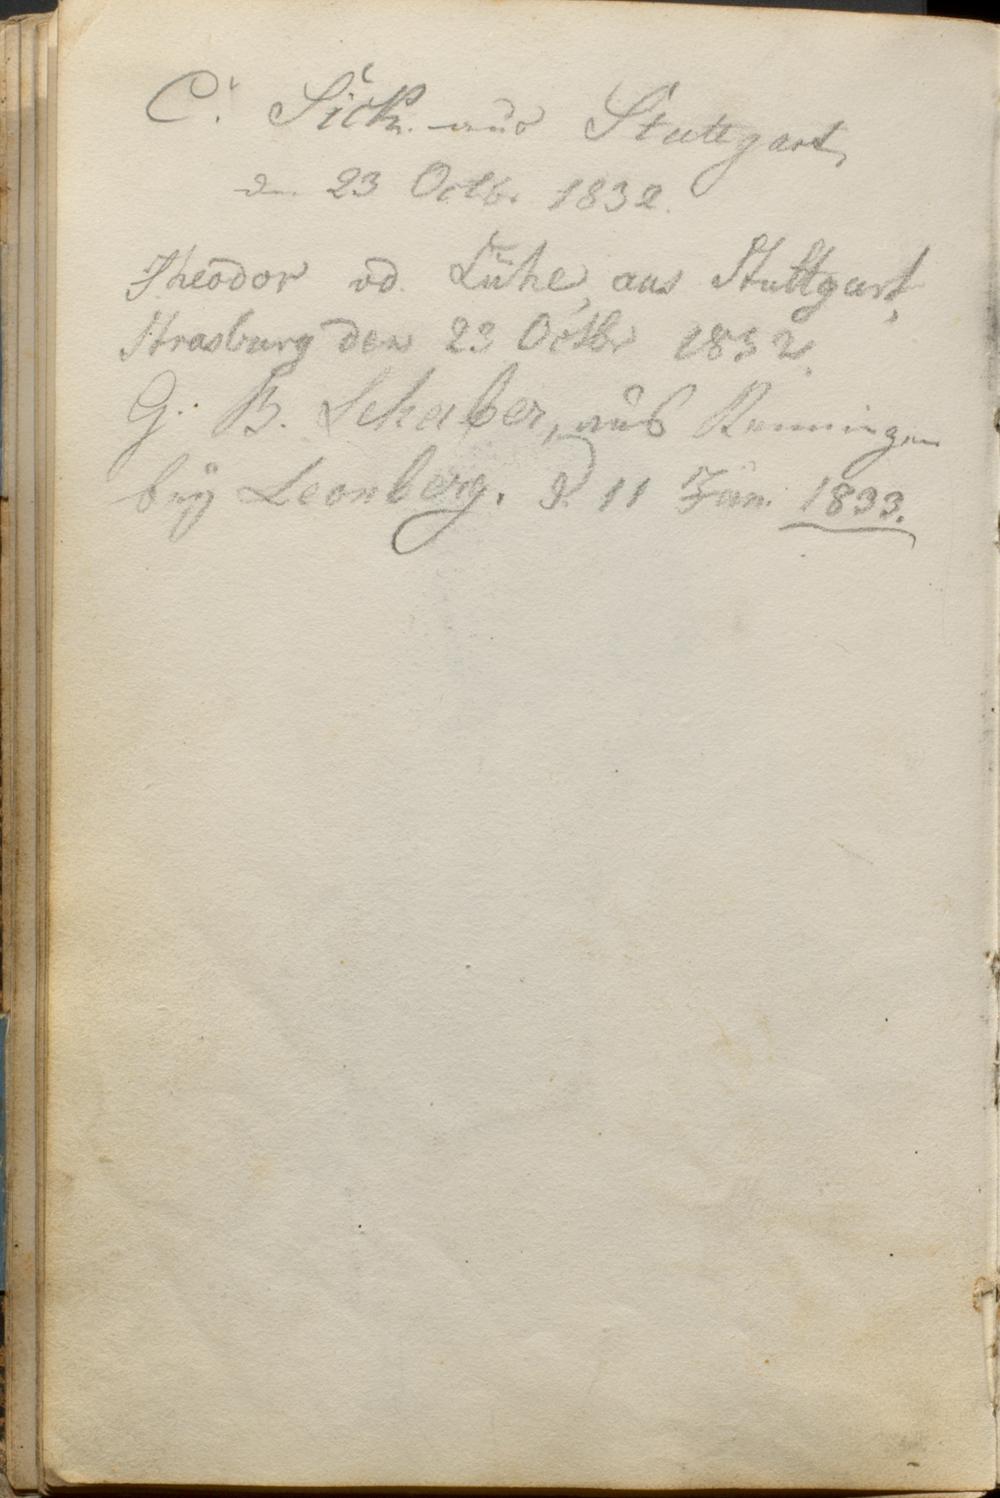 C. Sick. aus Stuttgart,
den 23 Octbr 1832.
Theodor vd. Lühe, aus Stuttgart,
Strasburg den 23 Octbr 1832.
G. B. Schaber, aus Renningen
bey Leonberg. d. 11 Jan. 1833.